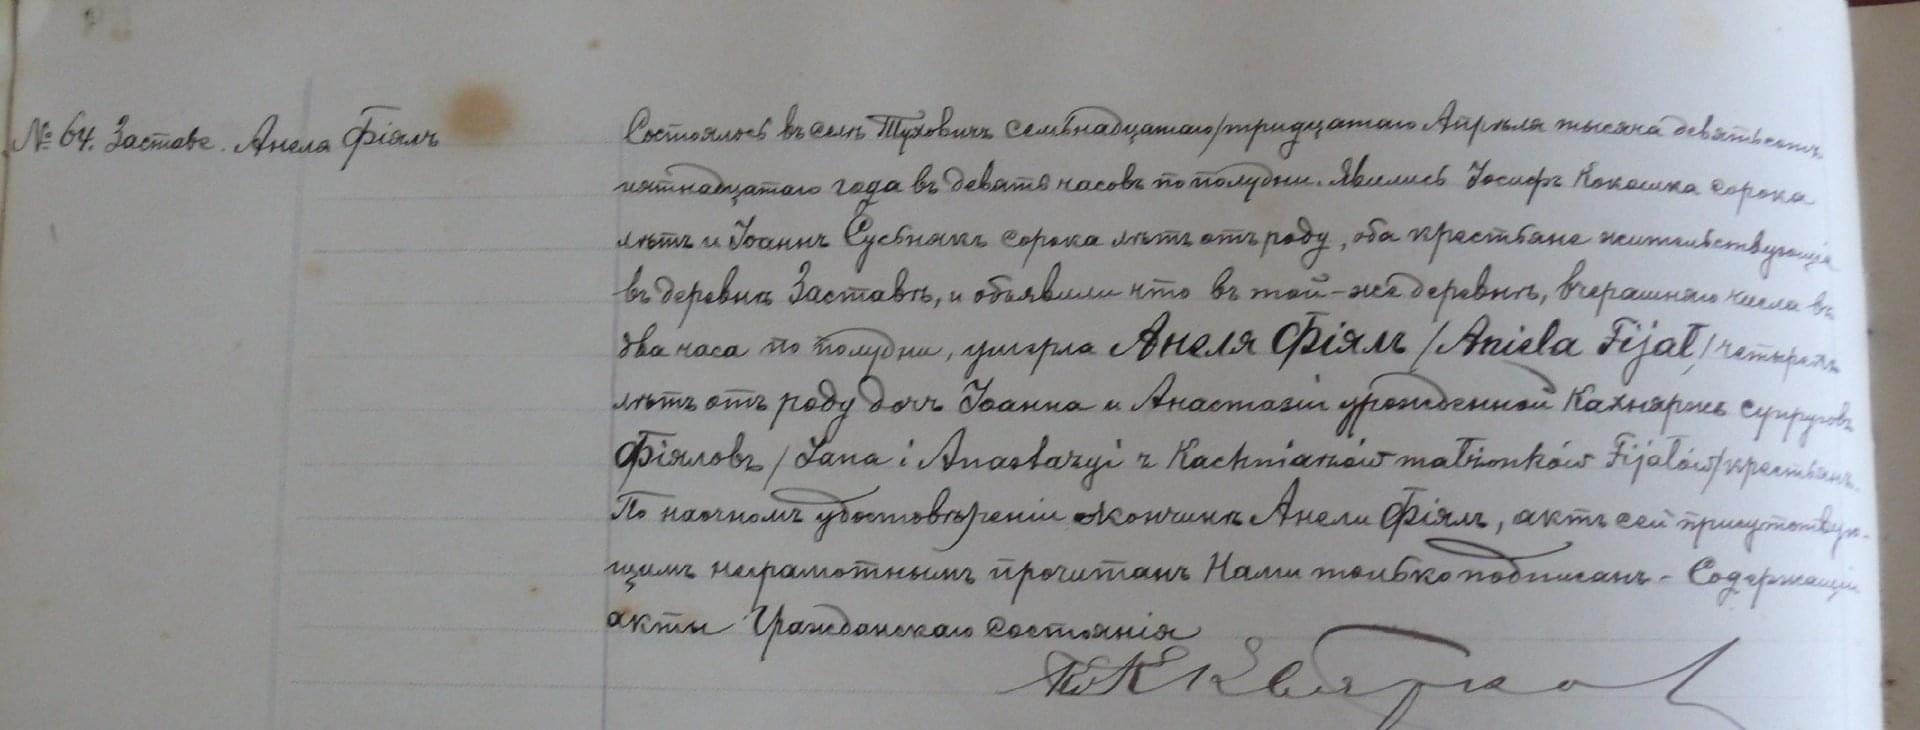 № 64. Заставе. Анеля Фіялъ
Состоялось въ селѣ Туховичъ семьнадцатаго/тридцатаго Апрѣля тысяча девятьсотъ
пятнадцатаго года въ девять часовъ по полудни. Явились Іосифъ Кокошка сорока
лѣтъ и Іоаннъ Сусьнякъ сорока лѣтъ отъ роду, оба крестьяне жительствующіе
въ деревнѣ Заставѣ, и объявили что въ той-же деревнѣ, вчерашняго числа въ
два часа по полудни, умерла Анеля Фіялъ /Aniela Fijał/ четырехъ
лѣтъ отъ роду дочь Іоанна и Анастазіи урожденной Кахняржъ супруговъ
Фіяловъ /Jana i Anastazyi z Kachniarzów małżonków Fijałów/ крестьянъ.
По наочномъ удостовѣреніи о кончинѣ Анели Фіялъ, актъ сей присутствую-
щимъ неграмотнымъ прочитанъ Нами только подписанъ. - Содержащій
акты Гражданскаго Состоянія